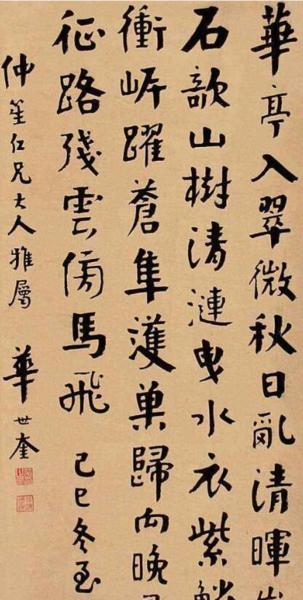 華亭入翠微秋日亂清暉崩
石欹山樹清漣曳水衣紫鱗
衝岸躍蒼隼護巢歸向晚
征路殘雲傍馬飛 己巳冬至
仲笙仁兄大人雅屬 華世奎